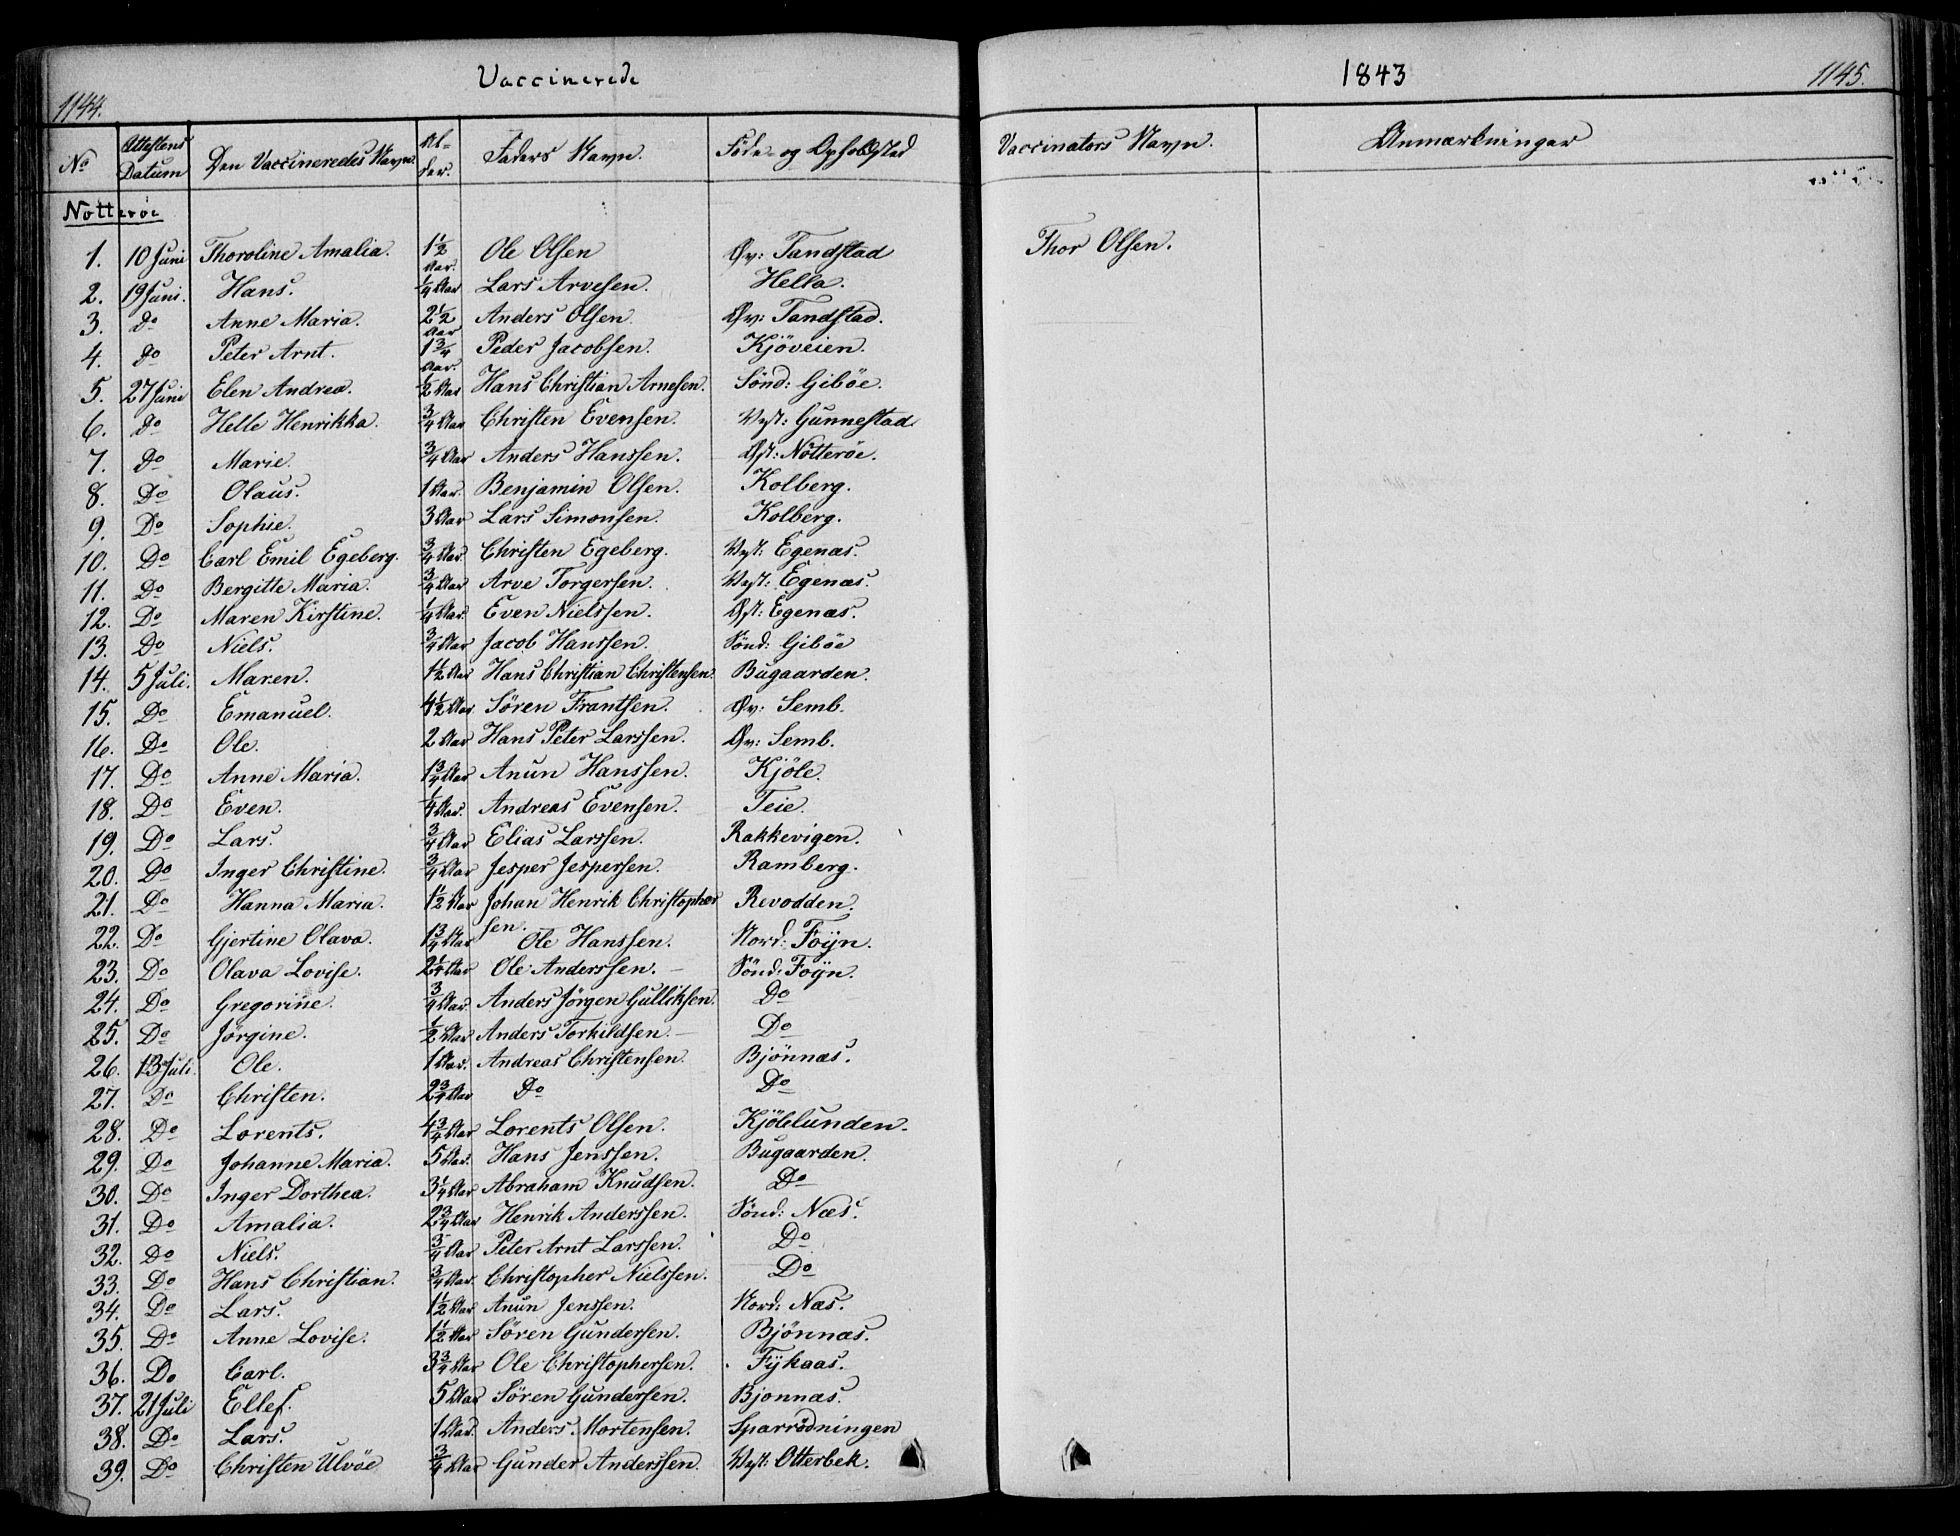 1144.
Vaccinerede
No Attestens Datum Den Vaccineredes Navn. Al-der. Faders Navn. Føde- og Opholdsted
Nötterøe
1. 10 Juni Thoroline Amalia. 1½ Aar. Ole Olsen Øv: Tandstad
2. 19 Juni. Hans. ¼ Aar Lars Arvesen. Hella.
3. Do Anne Maria. 2½ Aar Anders Olsen. Øv: Tandstad.
4. Do Peter Arnt. 1¾ Aar. Peder Jacobsen. Kjöveien.
5. 27 Juni Elen Andrea. ½ Aar Hans Christian Arnesen. Sönd: Giböe.
6. Do Helle Henrikka. ¾ Aar Christen Evensen. Vest: Gunnestad.
7. Do Marie. ¾ Aar Anders Hanssen. Øst: Nötterøe.
8. Do Olaus. 1 Aar. Benjamin Olsen. Kolberg.
9. Do Sophie. 3 Aar Lars Simonsen. Kolberg.
10. Do Carl Emil Egeberg. ¾ Aar. Christen Egeberg. Vest: Egenæs.
11. Do Bergitte Maria. ¾ Aar Arve Torgersen. Vest: Egenæs.
12. Do Maren Kirstine. ¼ Aar. Even Nielssen. Øst: Egenæs.
13. Do Niels. ¾ Aar Jacob Hanssen. Sönd: Giböe
14. 5 Juli. Maren. 1½ Aar Hans Christian Christensen. Bugaarden.
15. Do Emanuel. 4½ Aar Sören Frantsen. Øv: Semb.
16. Do Ole. 2 Aar Hans Peter Larssen. Øv: Semb.
17. Do Anne Maria. 1¾ Aar Anun Hanssen. Kjöle.
18. Do Even. ¼ Aar. Andreas Evensen. Teie.
19. Do Lars. ¾ Aar Elias Larssen. Rakkevigen.
20. Do Inger Christine. ¾ Aar Jesper Jespersen. Ramberg.
21. Do Hanna Maria. 1½ Aar Johan Henrik Christopher Revodden.
sen.
22. Do Gjertine Olava. 1¾ Aar Ole Hanssen. Nord: Foÿn.
23. Do Olava Lovise. 2¼ Aar Ole Anderssen. Sönd: Foÿn.
24. Do Gregorine. ¾ Aar. Anders Jörgen Gulliksen. Do
25. Do Jörgine. ½ Aar Anders Torkildsen. Do
26. 13 Juli. Ole. 1 Aar. Andreas Christensen. Bjönnæs.
27. Do Christen. 2¾ Aar Do Do
28. Do Lorents. 4¾ Aar Lorents Olsen. Kjölelunden.
29. Do Johanne Maria. 5 Aar. Hans Jenssen. Bugaarden.
30. Do Inger Dorthea. 3¼ Aar Abraham Knudsen. Do
31. Do Amalia. 2¾ Aar Henrik Anderssen. Sönd: Næs.
32. Do Niels. ¾ Aar Peter Arnt Larssen. Do
33. Do Hans Christian. ¾ Aar. Christopher Nielssen. Do
34. Do Lars. 1½ Aar Anun Jenssen. Nord: Næs.
35. Do Anne Lovise. 1½ Aar Sören Gundersen. Bjönnæs.
36. Do Carl. 3¾ Aar Ole Christophersen. Fÿkaas.
37. 21 Juli Ellef. 5 Aar Sören Gundersen. Bjonnæs.
38. Do Lars. 1 Aar. Anders Mortensen. Sparrödningen
39. Do Christen Ulvöe ¾ Aar Gunder Anderssen. Vest: Otterbek.
1843
1145.
Vaccinators Navn. Anmærkninger
Thor Olsen.